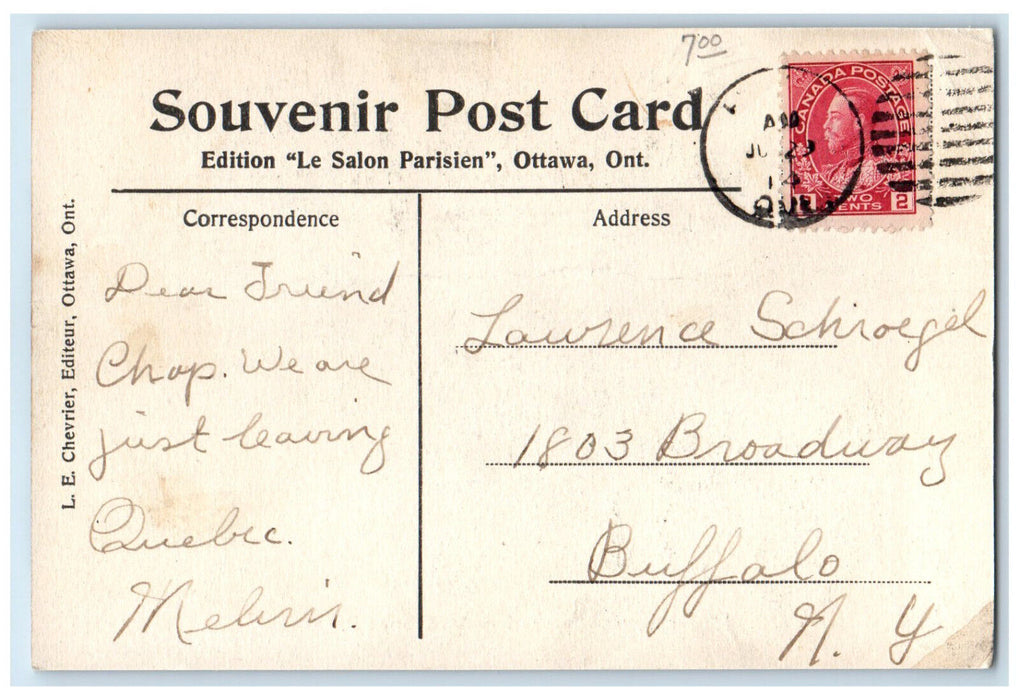 7.00
Souvenir Post Card
Edition "Le Salon Parisien", Ottawa, Ont.
CANADA POSTAGE
2 TWO CENTS 2
AM
29
14
QUE
Correspondence
Address
L. E. Chevrier, Editeur, Ottawa, Ont.
Dear Friend
Chap. We are
just leaving
Quebec.
Melvin.
Lawrence Schroegel
1803 Broadway
Buffalo
N. Y